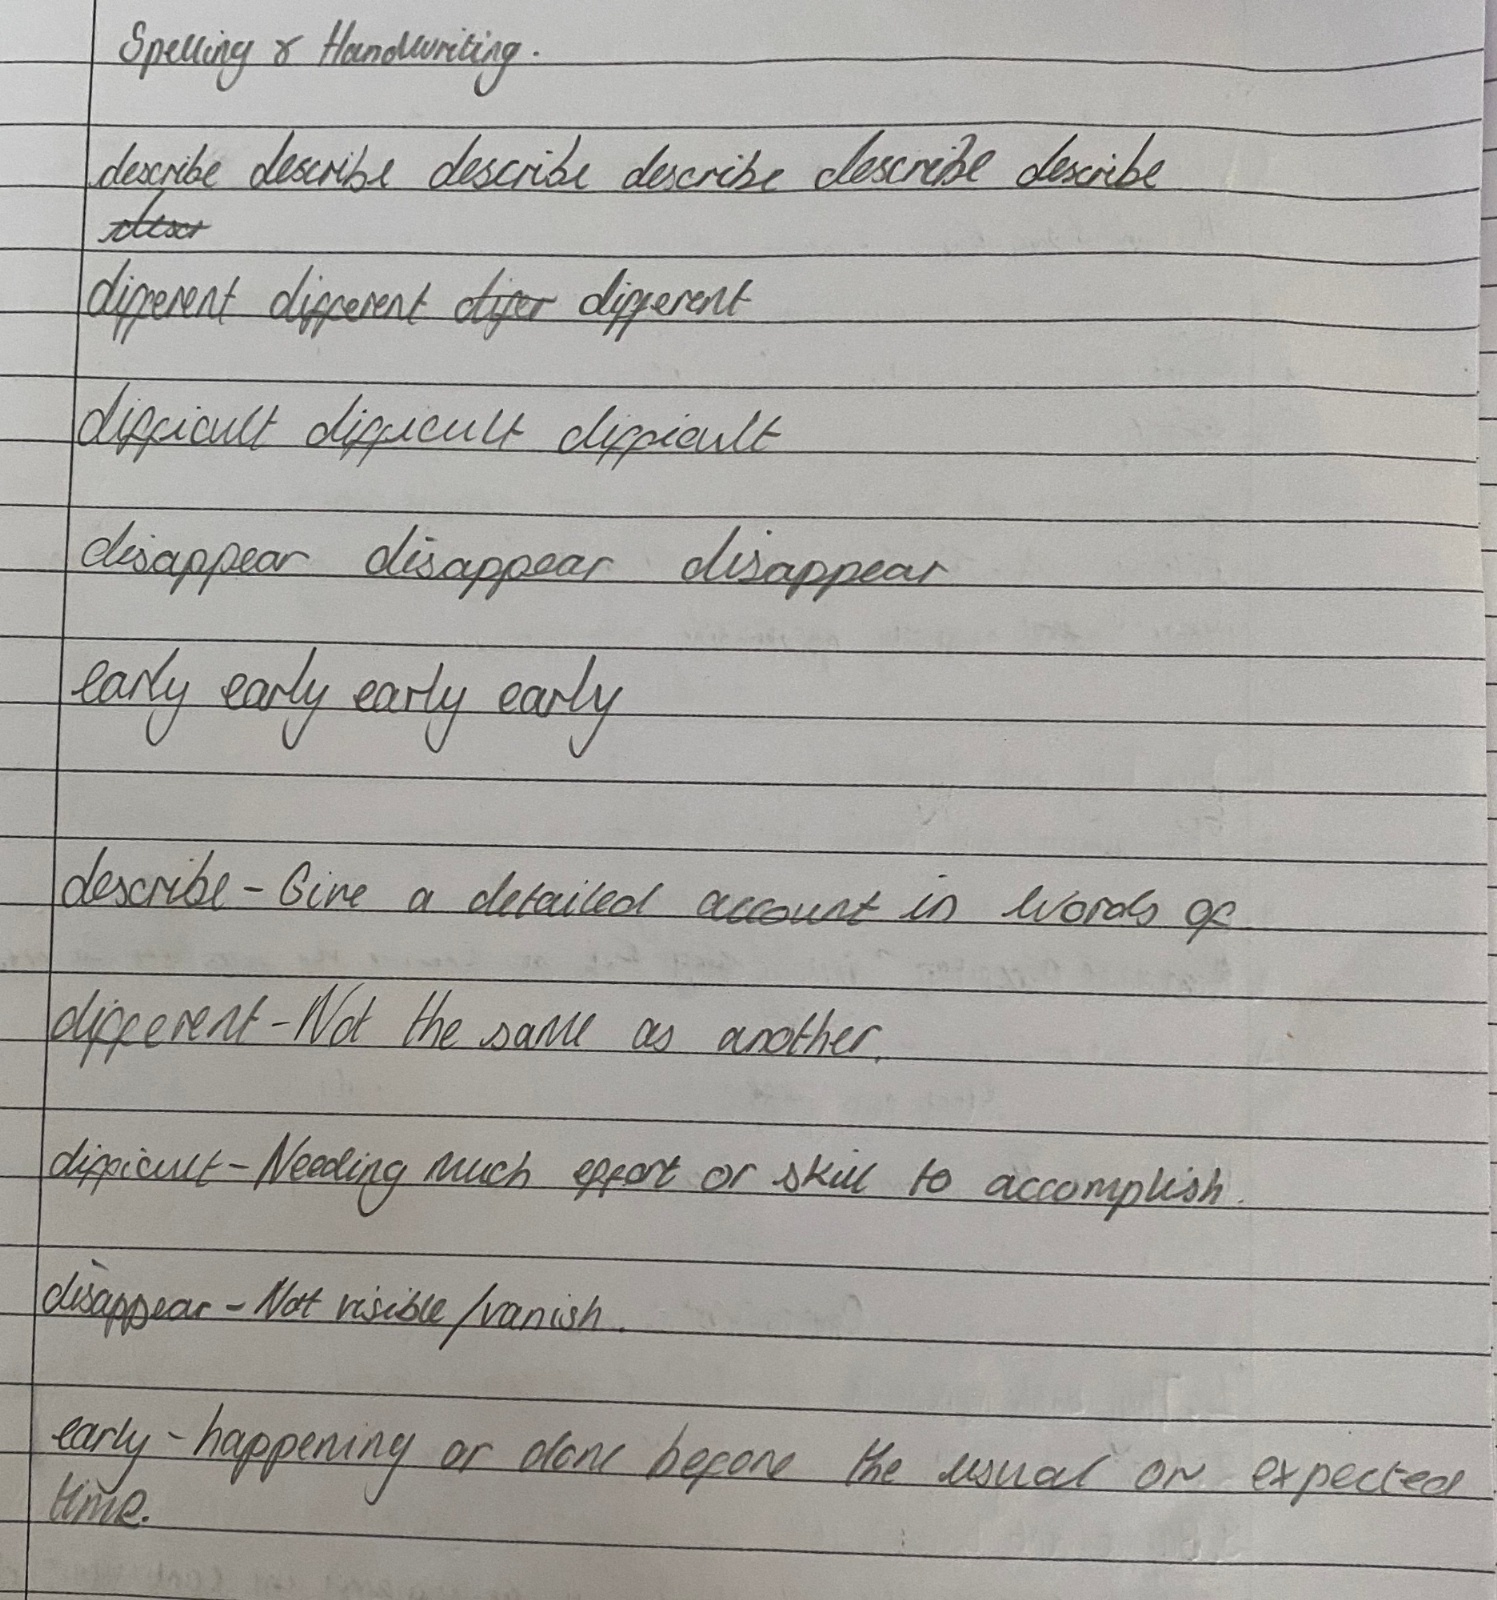 Spelling & Handwriting.
describe describe describe describe describe describe
descr
different different difer different
difficult difficult difficult
disappear disappear disappear
early early early early
describe - Give a detailed account in words of
different - Not the same as another.
difficult - Needing much effort or skill to accomplish.
disappear - Not visible / vanish.
early - happening or done before the usual or expected
time.